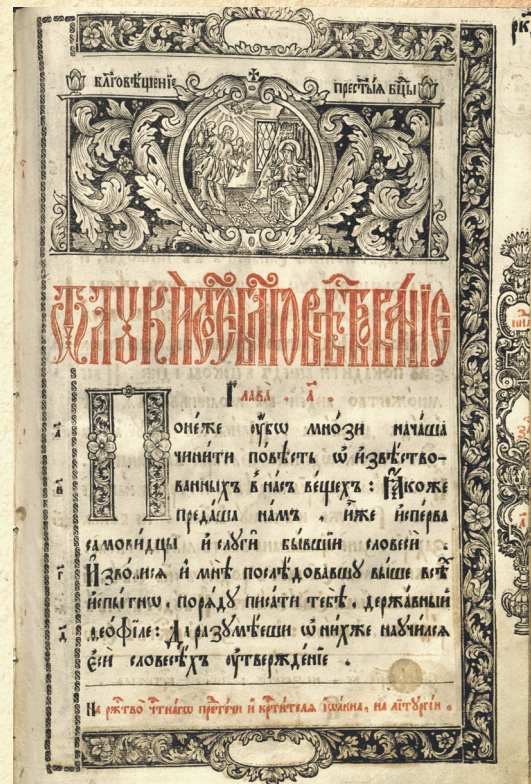 рк҃
Бл҃гове́щенїе прест҃ы́ѧ бц҃ы
Ѿ лꙋкѝ ст҃о́е бл҃говѣствова́нїе
Глава̀ . а҃ .
Поне́же ᲂу҆́бѡ мно́зи нача́ша
а҃
чини́ти по́вѣсть ѡ҆ и҆звѣ́ство-
ванныхъ въ на́съ ве́щехъ : Ꙗ҆́коже
в҃
преда́ша на́мъ , и҆̀же и҆спе́рва
самови́дцы и҆ слꙋги̑ бы́вшїи словесѐ .
Изво́лисѧ и҆ мнѣ̀ послѣ́довавшꙋ вы́ше всѣ̑
г҃
и҆спы́тнѡ , порѧ́дꙋ писа́ти тебѣ̀ , держа́вный
ѳео́филе : Да разꙋмѣ́еши ѡ҆ ни́хже наꙋчи́лсѧ
д҃
є҆сѝ словесѣ́хъ ᲂу҆твержде́нїе .
На ржⷭ҇тво̀ чⷭ҇тна́гѡ прⷣте́чи и҆ крⷭ҇ти́телѧ і҆ѡа́нна , на лїтꙋргі́и .